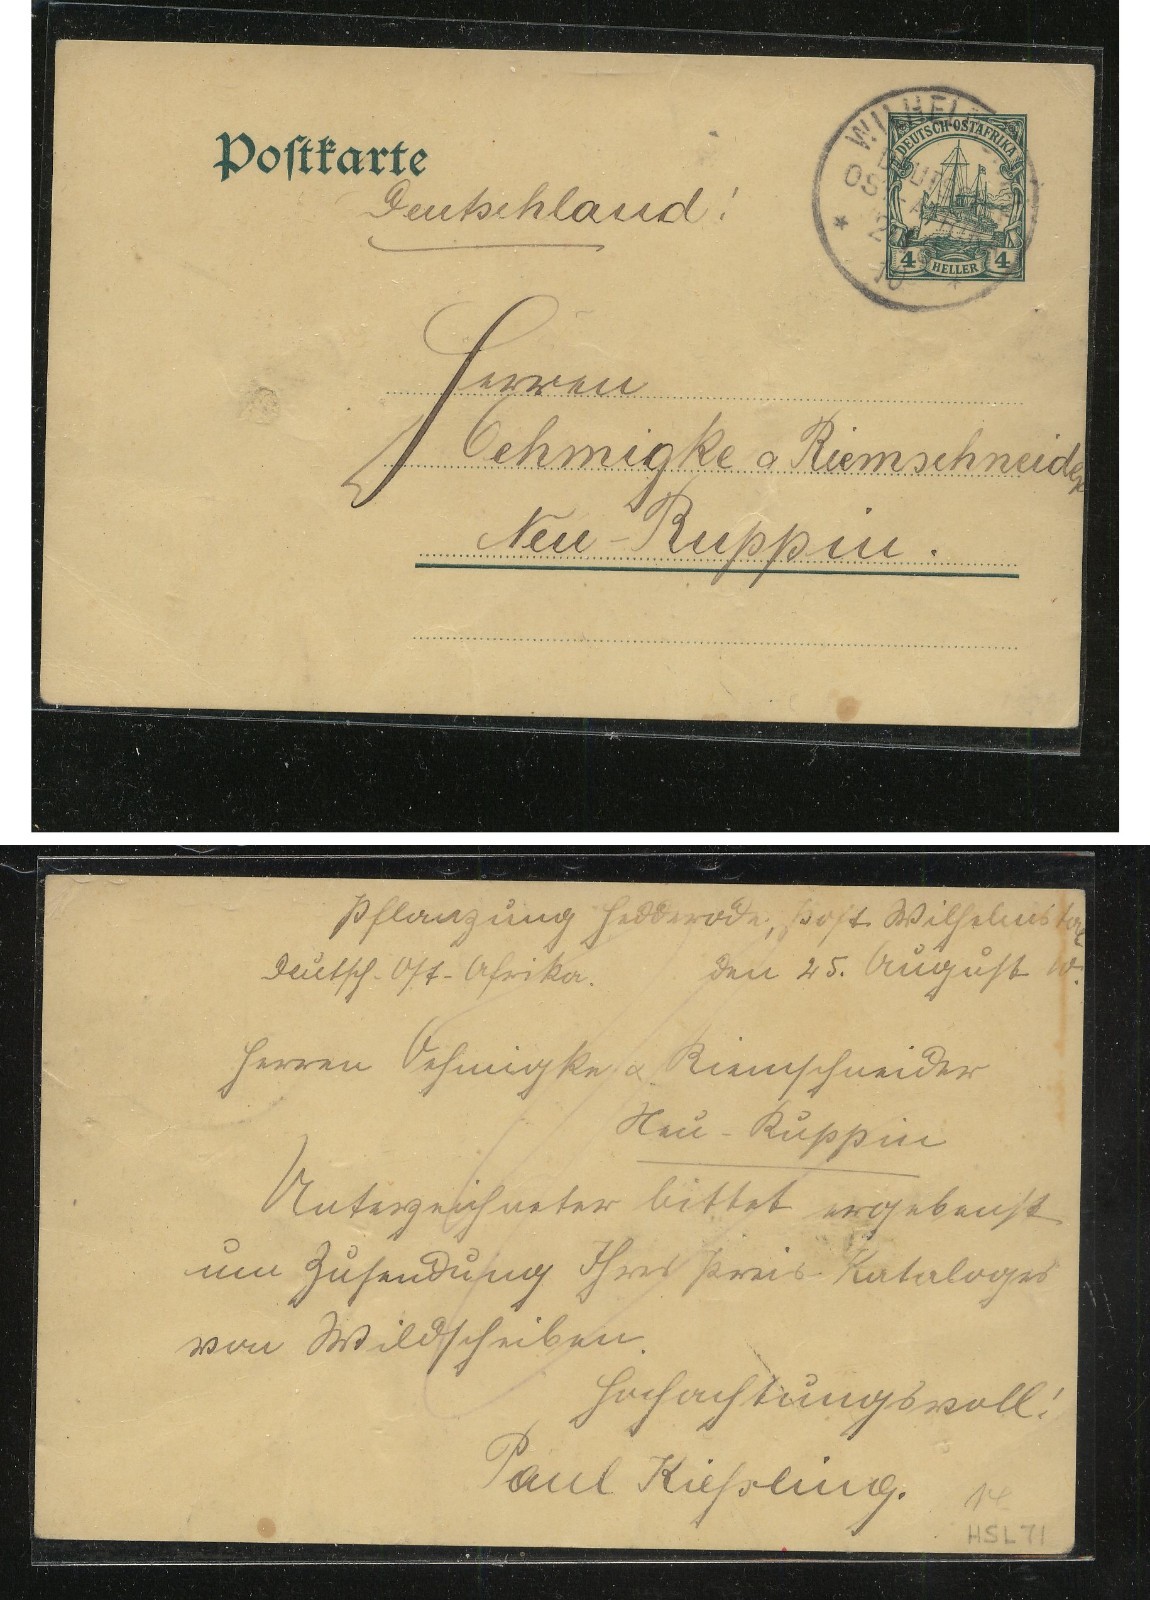 Postkarte
Deutschland!
DEUTSCH-OSTAFRIKA
4 HELLER 4
Herren
Oehmigke & Riemschneider
Neu-Ruppin.
Pflanzung Hedderode, Post Wilhelmstal
Deutsch-Ost-Afrika. den 25. August 10.
Herren Oehmigke & Riemschneider
Neu-Ruppin
Unterzeichneter bittet ergebenst
um Zusendung Ihres Preis-Kataloges
von Wildscheiben.
Hochachtungsvoll!
Paul Kießling.
HSL 71